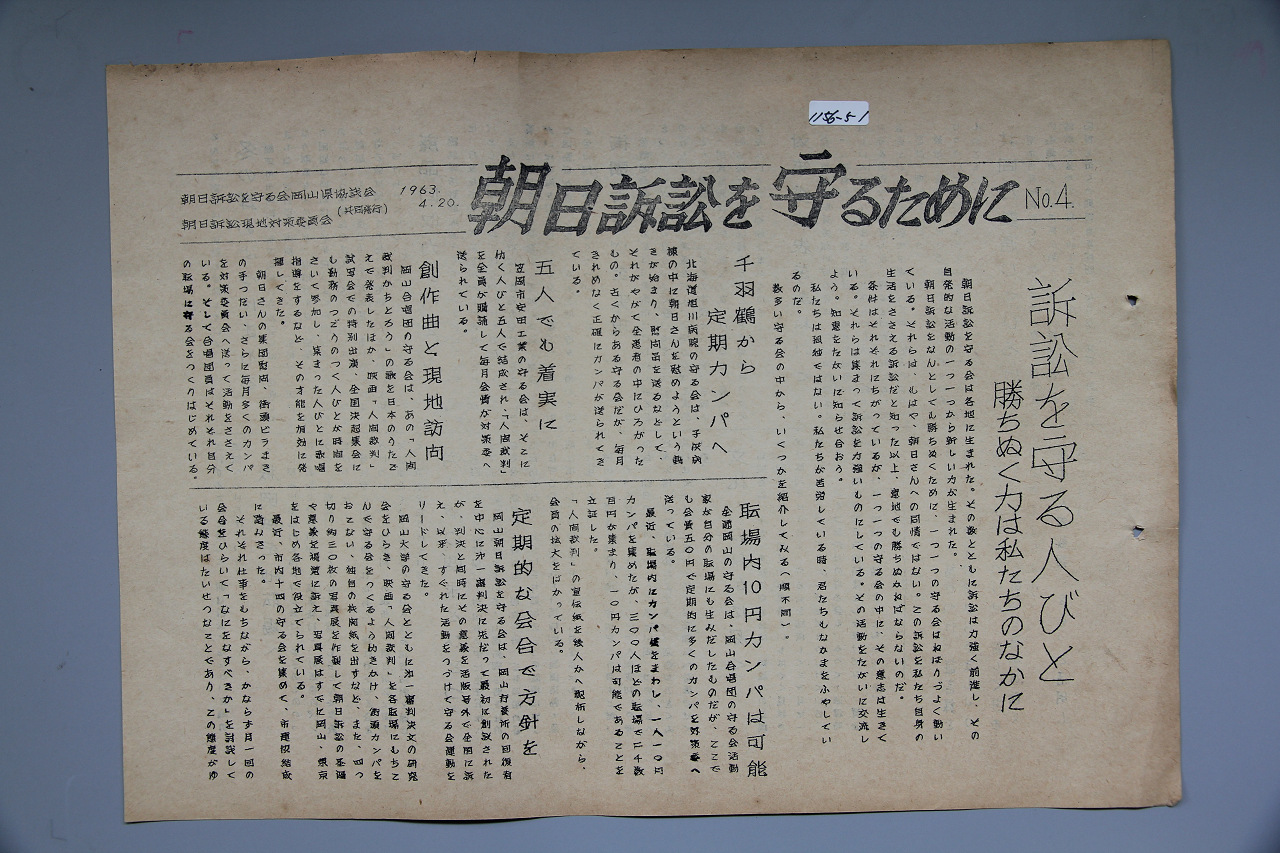 1156-51
朝日訴訟を守るために No.4.
1963.
4.20.
朝日訴訟を守る会岡山県協議会
(共同発行)
朝日訴訟現地対策委員会
訴訟を守る人びと
勝ちぬく力は私たちのなかに
朝日訴訟を守る会は各地に生まれた。その数とともに訴訟は力強く前進し、その
自発的な活動の一つ一つから新しい力が生まれた。
朝日訴訟をなんとしても勝ちぬくために、一つ一つの守る会はねばりづよく動い
ている。それらは、もはや、朝日さんへの同情ではない。この訴訟を私たち自身の
生活をささえる訴訟だと知った以上、意地でも勝ちぬかねばならないのだ。
条件はそれぞれにちがっているが、一つ一つの守る会の中に、その意志は生きて
いる。それらは集まって訴訟を力強いものにしている。その活動をたがいに交流し
よう。知恵をたがいに知らせ合おう。
私たちは孤独ではない。私たちが苦労している時、君たちもなかまをふやしてい
るのだ。
数多い守る会の中から、いくつかを紹介してみる(順不同)。
千羽鶴から
定期カンパへ
北海道旭川病院の守る会は、子供病
棟の中に朝日さんを慰めようという動
きが始まり、慰問品を送るなどして、
それがやがて全患者の中にひろがった
もの。古くからある守る会だが、毎月
きれめなく正確にカンパが送られてき
ている。
五人でも着実に
笠岡市安田工業の守る会は、そこに
働く人びと五人で結成され、「人間裁判」
を全員が購読して毎月会費が対策委へ
送られている。
創作曲と現地訪問
岡山合唱団の守る会は、あの「人間
裁判かちとろう」の歌を日本のうたご
えで発表したほか、映画「人間裁判」
試写会での特別出演、全国決起集会に
も勤務のつごうのつく人びとが時間を
さいて参加し、集まった人びとに歌唱
指導をするなど、その才能を有効に発
揮してきた。
朝日さんの集団訪問、街頭ビラまき
の手つだい、さらに毎月多くのカンパ
を対策委員会へ送って活動をささえて
いる。そして合唱団員はそれぞれ自分
の職場に守る会をつくりはじめている。
職場内10円カンパは可能
全逓岡山の守る会は、岡山合唱団の守る会活動
家が自分の職場にも生みだしたものだが、ここで
も会費五〇円で定期的に多くのカンパを対策委へ
送っている。
最近、職場内にカンパ袋をまわし、一人一〇円
カンパを集めたが、三〇〇人ほどの職場で二千数
百円が集まり、一〇円カンパは可能であることを
立証した。
「人間裁判」の宣伝紙を数人かへ配布しながら、
会員の拡大をはかっている。
定期的な会合で方針を
岡山朝日訴訟を守る会は、岡山療養所の回復者
を中心に第一審判決に先だって最初に創設された
が、判決と同時にその意義を活版号外で全国に訴
え、以来、すぐれた活動をつづけて守る会運動を
リードしてきた。
岡山大学の守る会とともに第一審判決文の研究
会をひらき、映画「人間裁判」を各職場にもちこ
んで守る会をつくるよう働きかけ、街頭カンパを
おこない、独自の機関紙を出すなど、また、四つ
切り約三〇枚の写真展を作製して朝日訴訟の基礎
や意義を視覚に訴え、写真展はすでに岡山、東京
をはじめ各地で役立てられている。
最近、市内十四の守る会を集めて、市連協結成
に踏みきった。
それぞれ仕事をもちながら、かならず月一回の
会合をひらいて「なにをなすべきか」を討議して
いる態度はたいせつなことであり、この態度がゆ